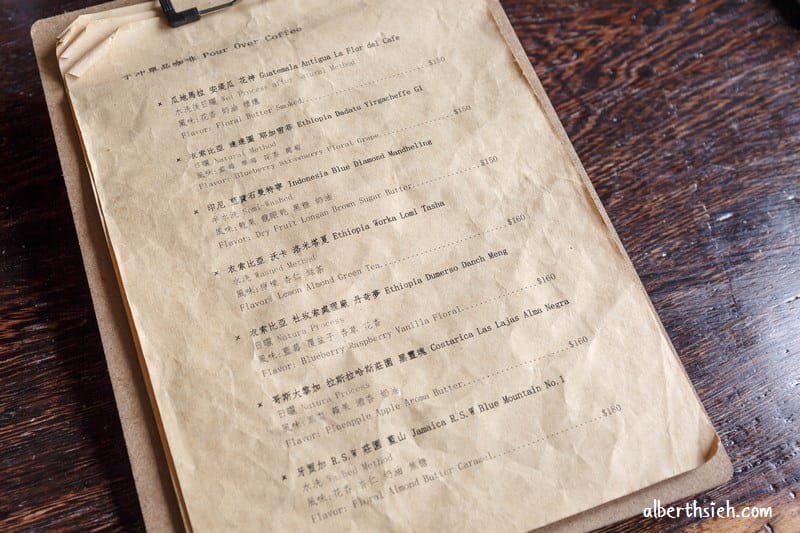 手沖單品咖啡 Pour Over Coffee
× 瓜地馬拉 安堤瓜 花神 Guatemala Antigua La Flor del Cafe
水洗後日曬 Sun Process after Washed Method
風味:花香 奶油 煙燻
Flavor: Floral Butter Smoked $150
× 衣索比亞 達達圖 耶加雪菲 Ethiopia Dadatu Yirgacheffe G1
日曬 Natural Method
風味:藍莓 草莓 花香 葡萄
Flavor: Blueberry Strawberry Floral Grape $150
× 印尼 藍寶石曼特寧 Indonesia Blue Diamond Mandheling
半水洗 Semi-Washed
風味:乾果 龍眼乾 黑糖 奶油
Flavor: Dry Fruit Longan Brown Sugar Butter $150
× 衣索比亞 沃卡 洛米塔夏 Ethiopia Worka Lomi Tasha
水洗 Washed Method
風味:檸檬 杏仁 綠茶
Flavor: Lemon Almond Green Tea $160
× 衣索比亞 杜玫索處理廠 丹奇夢 Ethiopia Dumerso Danch Meng
日曬 Natura Process
風味:藍莓 覆盆子 香草 花香
Flavor: Blueberry Raspberry Vanilla Floral $160
× 哥斯大黎加 拉斯拉哈斯莊園 黑靈魂 Costarica Las Lajas Alma Negra
日曬 Natura Process
風味:鳳梨 蘋果 酒香 奶油
Flavor: Pineapple Apple Aroma Butter $160
× 牙買加 R.S.W 莊園 藍山 Jamaica R.S.W Blue Mountain No.1
水洗 Washed Method
風味:花香 杏仁 奶油 焦糖
Flavor: Floral Almond Butter Caramel $180
alberthsieh.com